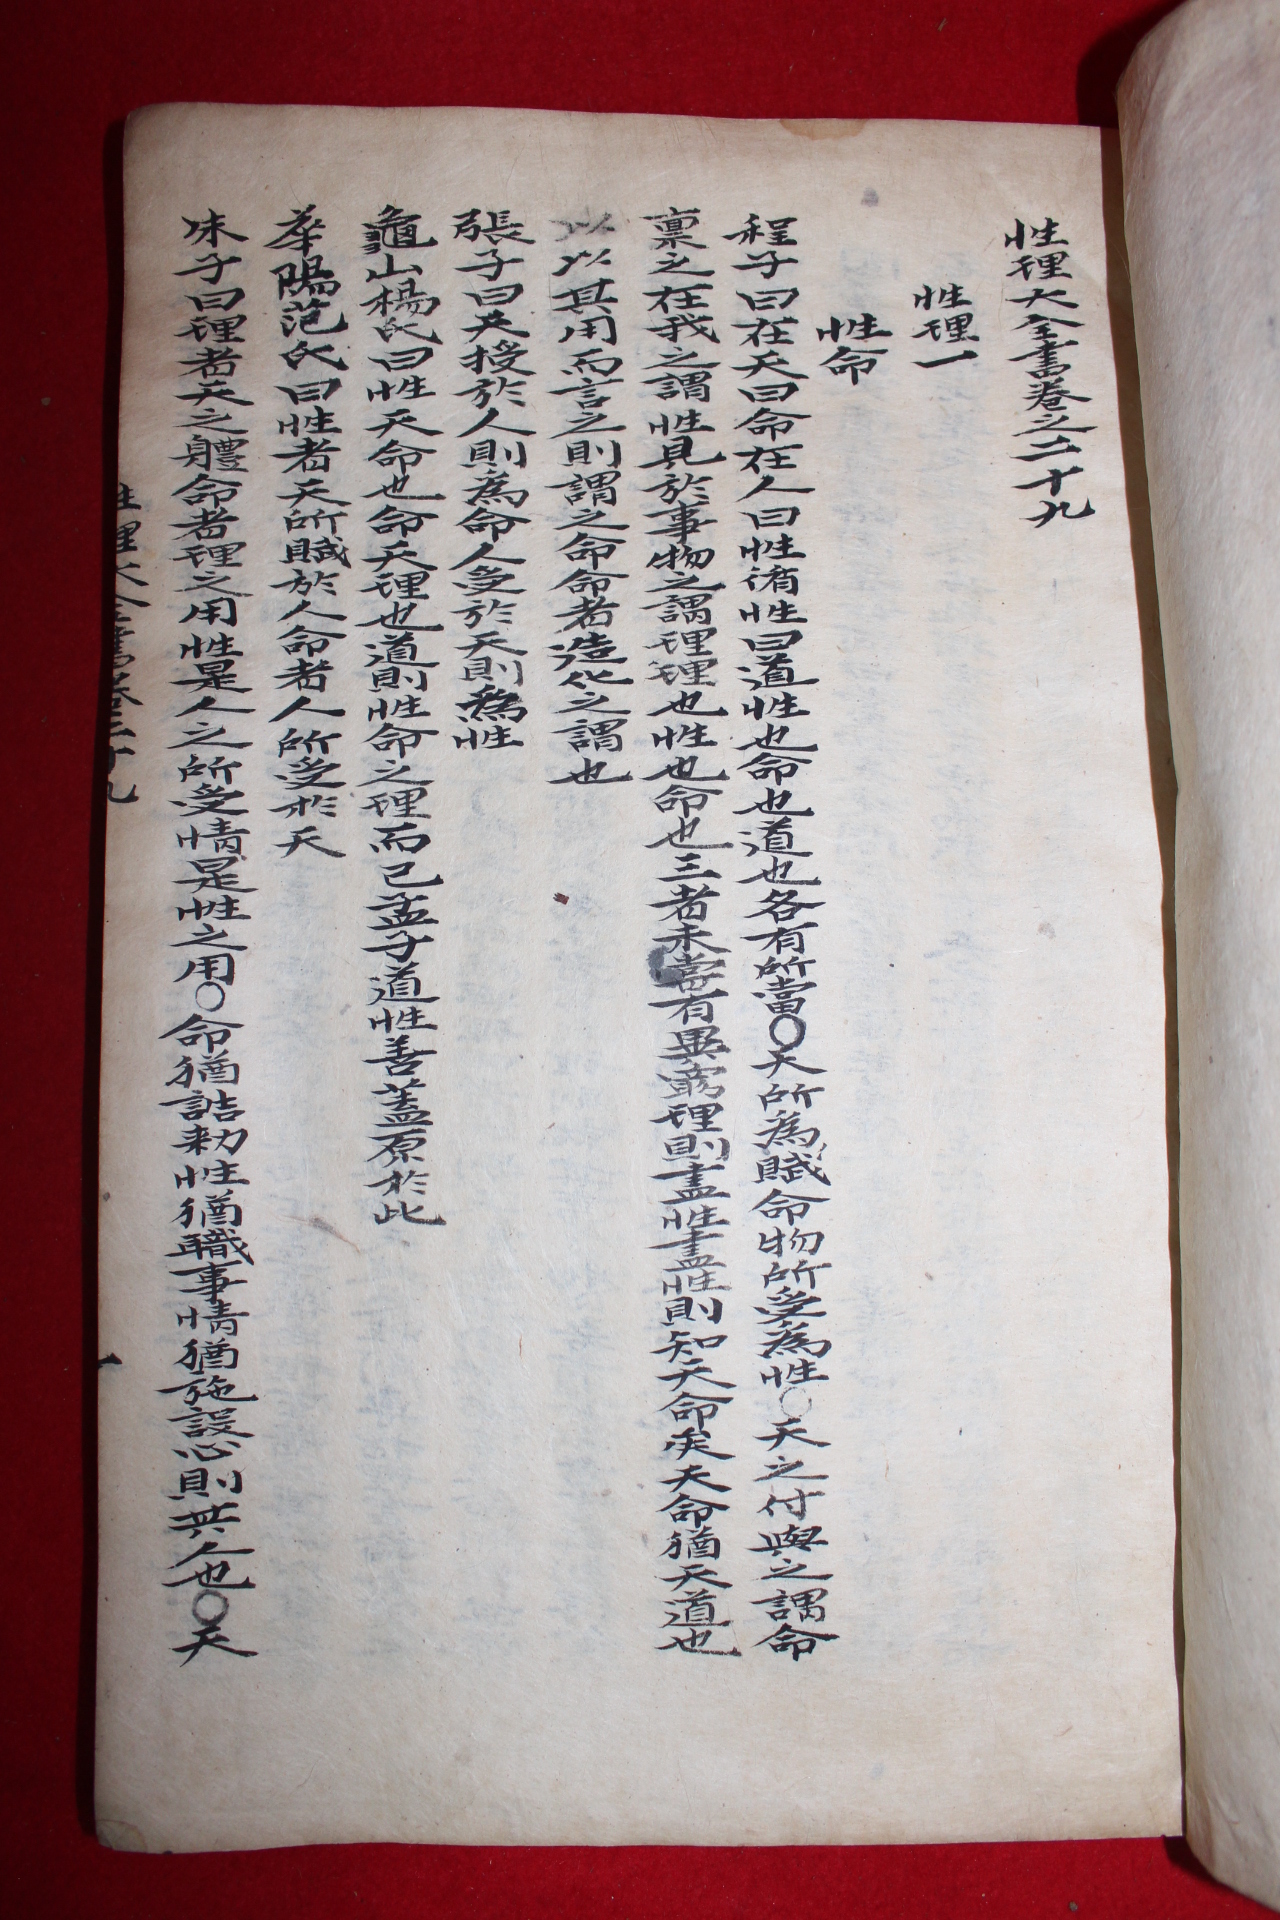 性理大全書卷之二十九
性理一
性命
程子曰在天曰命在人曰性循性曰道性也命也道也各有所當○天所為賦命物所受為性○天之付與之謂命
稟之在我之謂性見於事物之謂理理也性也命也三者未嘗有異窮理則盡性盡性則知天命矣天命猶天道也
以以其用而言之則謂之命命者造化之謂也
張子曰天授於人則為命人受於天則為性
龜山楊氏曰性天命也命天理也道則性命之理而已孟子道性善蓋原於此
華陽范氏曰性者天所賦於人命者人所受於天
朱子曰理者天之體命者理之用性是人之所受情是性之用○命猶誥勑性猶職事情猶施設心則其人也○天
性理大全書卷之二十九
一